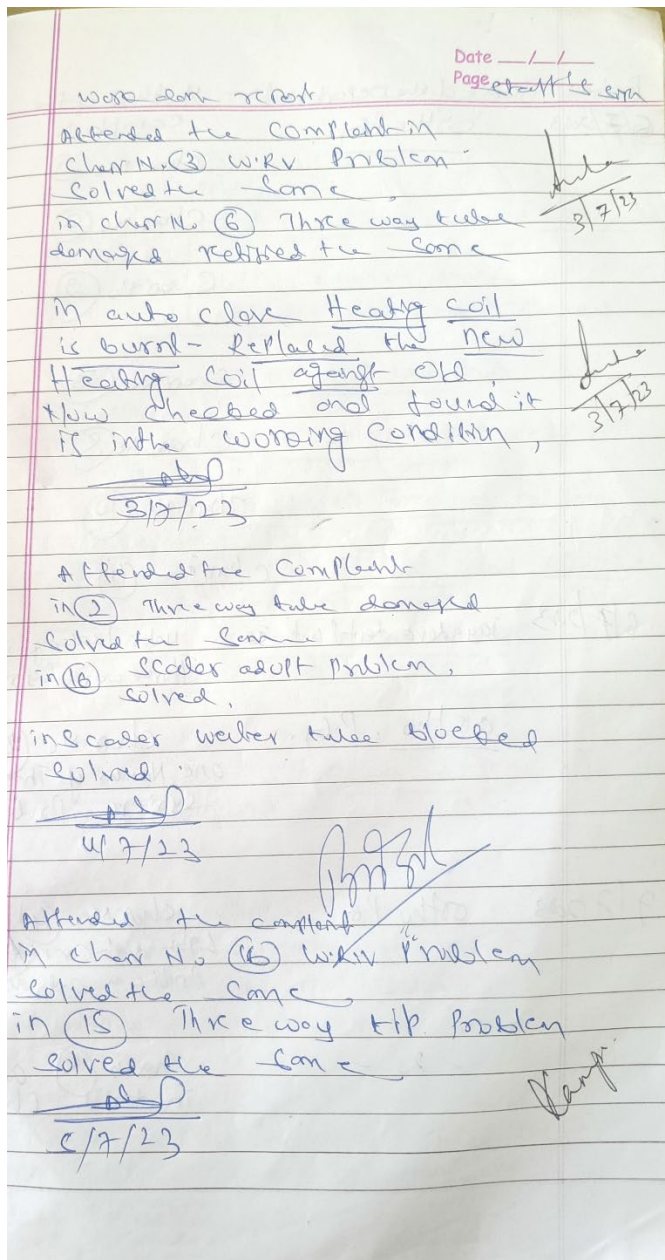 Date __/__/__
Page staff's sign
work done report
Attended the complaint in
Chair N. (3) W.R.V Problem
Solved the Same
3/7/23
in chair No (6) Three way tube
damaged retified the Same
in auto clave Heating coil
is burnt - Replaced the new
Heating Coil against Old,
Now checked and found it
3/7/23
is in the working Condition,
3/7/23
Attended the Complaint
in (2) Three way tube damaged
Solved the Same
in (16) Scaler adopt Problem,
solved,
in Scaler water tube blocked
Solved
4/7/23
Attended the complaint
in Chair No (16) W.R.V Problem
Solved the Same
in (15) Three way tip Problem
Solved the Same
5/7/23